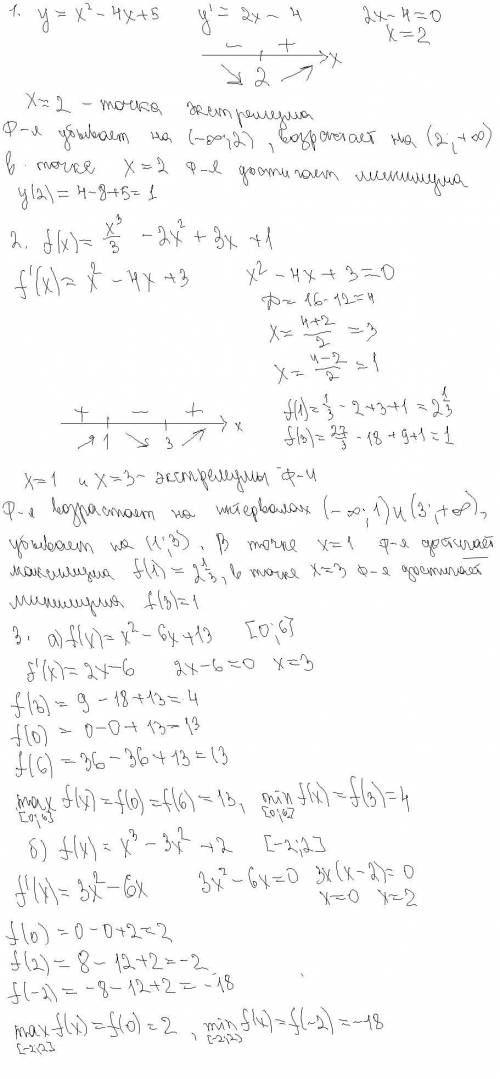 1. y = x² - 4x + 5    y' = 2x - 4    2x - 4 = 0
x = 2
- + x
2
x = 2 - точка экстремума
Ф-я убывает на (-∞; 2), возрастает на (2; +∞)
в точке x = 2 ф-я достигает минимума
y(2) = 4 - 8 + 5 = 1
2. f(x) = x³/3 - 2x² + 3x + 1
f'(x) = x² - 4x + 3    x² - 4x + 3 = 0
D = 16 - 12 = 4
x = (4+2)/2 = 3
x = (4-2)/2 = 1
+ - + x
1 3
f(1) = 1/3 - 2 + 3 + 1 = 2 1/3
f(3) = 27/3 - 18 + 9 + 1 = 1
x = 1 и x = 3 - экстремумы ф-и
Ф-я возрастает на интервалах (-∞; 1) и (3; +∞),
убывает на (1; 3). В точке x = 1 ф-я достигает
максимума f(1) = 2 1/3, в точке x = 3 ф-я достигает
минимума f(3) = 1
3. а) f(x) = x² - 6x + 13    [0; 6]
f'(x) = 2x - 6    2x - 6 = 0    x = 3
f(3) = 9 - 18 + 13 = 4
f(0) = 0 - 0 + 13 = 13
f(6) = 36 - 36 + 13 = 13
max f(x) = f(0) = f(6) = 13, min f(x) = f(3) = 4
[0;6] [0;6]
б) f(x) = x³ - 3x² + 2    [-2; 2]
f'(x) = 3x² - 6x    3x² - 6x = 0    3x(x - 2) = 0
x = 0    x = 2
f(0) = 0 - 0 + 2 = 2
f(2) = 8 - 12 + 2 = -2
f(-2) = -8 - 12 + 2 = -18
max f(x) = f(0) = 2, min f(x) = f(-2) = -18
[-2;2] [-2;2]